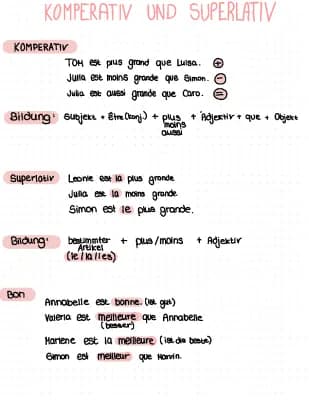 KOMPERATIV UND SUPERLATIV
KOMPERATIV
TOM est plus grand que Luisa. +
Julia est moins grande que Simon. -
Julia est aussi grande que Caro. =
Bildung: Subjekt + être (konj.) + plus + Adjektiv + que + Objekt
moins
aussi
Superlativ Leonie est la plus grande
Julia est la moins grande.
Simon est le plus grande.
Bildung: bestimmter + plus/moins + Adjektiv
Artikel
(le/la/les)
Bon
Annabelle est bonne. (ist gut)
Valeria est meilleure que Annabelle
(besser)
Marlene est la meilleure (ist die beste)
Simon est meilleur que Marvin.